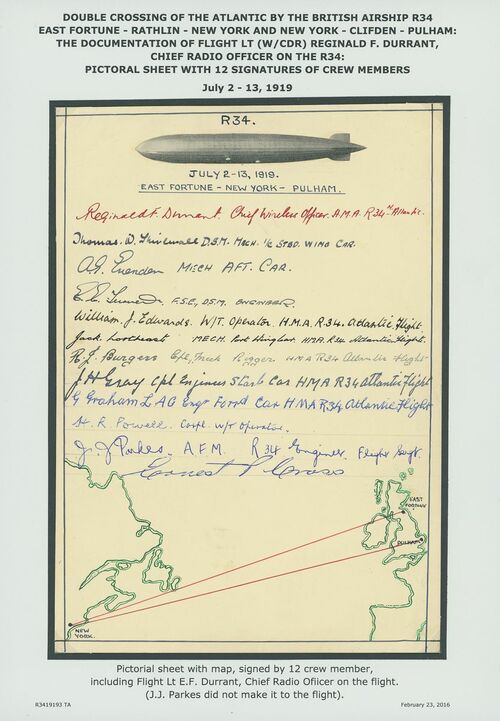 DOUBLE CROSSING OF THE ATLANTIC BY THE BRITISH AIRSHIP R34
EAST FORTUNE - RATHLIN - NEW YORK AND NEW YORK - CLIFDEN - PULHAM:
THE DOCUMENTATION OF FLIGHT LT (W/CDR) REGINALD F. DURRANT,
CHIEF RADIO OFFICER ON THE R34:
PICTORAL SHEET WITH 12 SIGNATURES OF CREW MEMBERS
July 2 - 13, 1919
R34.
JULY 2-13, 1919.
EAST FORTUNE - NEW YORK - PULHAM.
Reginald F. Durrant. Chief Wireless Officer. H.M.A. R34 Atlantic.
Thomas. D. D.S.M. Mech. I/C Stbd. Wing Car.
Evenden Mech Aft. Car.
D.S.M. Engineer
William. J. Edwards. W/T. Operator. H.M.A. R.34. Atlantic Flight.
Jack. Mech. Port Wing Car HMA. R34 Atlantic Flight.
Burgess Rigger HMA R34 Atlantic Flight
J H Gray Cpl Engineer Starb Car HMA R34 Atlantic Flight
G Graham LAC Engr Forrd Car HMA R34 Atlantic Flight
R. Powell. Corpl. W/T Operator.
J. J Parkes. A F M. R 34 Engineer. Flight Sergt.
Ernest P Cross
EAST FORTUNE
PULHAM
NEW YORK.
Pictorial sheet with map, signed by 12 crew member,
including Flight Lt E.F. Durrant, Chief Radio Oficer on the flight.
(J.J. Parkes did not make it to the flight).
R3419193 TA
February 23, 2016